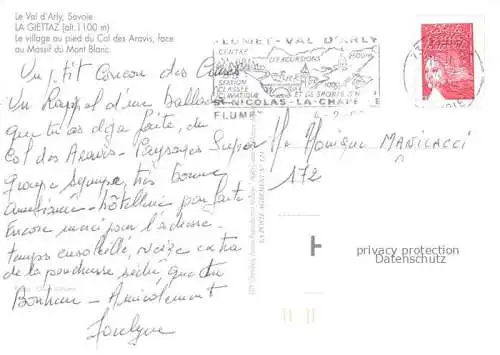 Le Val d'Arly, Savoie
LA GIETTAZ (alt.1100 m)
Le village au pied du Col des Aravis, face
au Massif du Mont Blanc.
FLUMET-VAL D'ARLY
CENTRE
D'EXCURSIONS
STATION
CLASSÉE
CLIMATIQUE
ET DE SPORTS
ST NICOLAS-LA-CHAPE
FLUMET
Un p'tit Coucou des
Un Rappel d'une ballade
que tu as déjà faite, du
Col des Aravis - Paysages Super
groupe sympa, très bonne
ambiance - hôtellerie parfaite
Encore merci pour l'adresse -
temps ensoleillé, neige extra
de la poudreuse
Bonheur - Amicalement
Jocelyne
Mle Monique MANICACCI
172
LA POSTE AGREMENT N°
privacy protection
Datenschutz